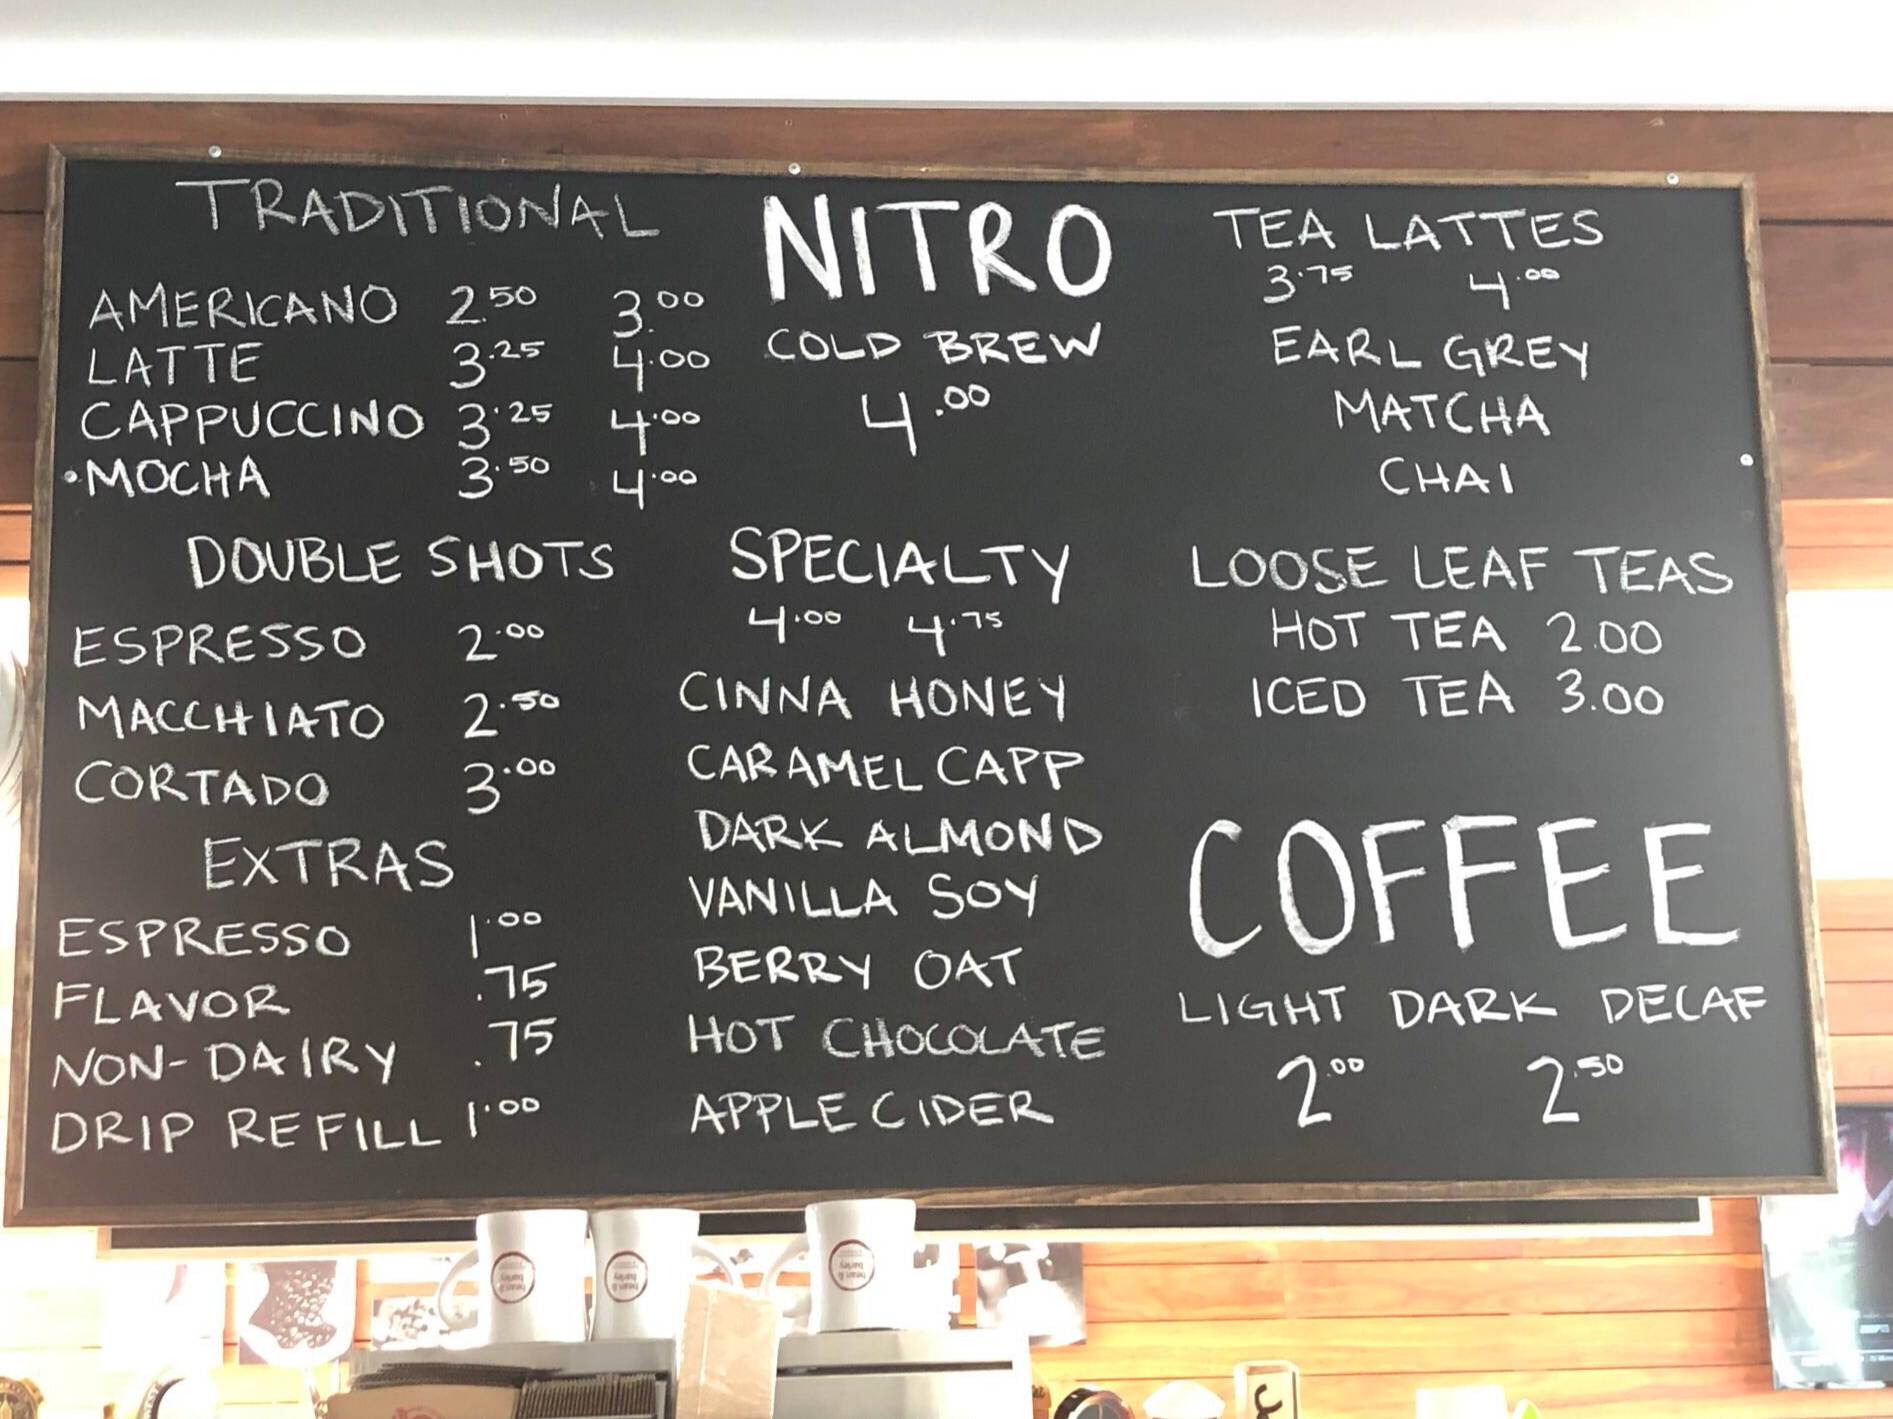 TRADITIONAL
AMERICANO 2.50 3.00
LATTE 3.25 4.00
CAPPUCCINO 3.25 4.00
·MOCHA 3.50 4.00
DOUBLE SHOTS
ESPRESSO 2.00
MACCHIATO 2.50
CORTADO 3.00
EXTRAS
ESPRESSO 1.00
FLAVOR .75
NON-DAIRY .75
DRIP REFILL 1.00
NITRO
COLD BREW
4.00
SPECIALTY
4.00 4.75
CINNA HONEY
CARAMEL CAPP
DARK ALMOND
VANILLA SOY
BERRY OAT
HOT CHOCOLATE
APPLE CIDER
TEA LATTES
3.75 4.00
EARL GREY
MATCHA
CHAI
LOOSE LEAF TEAS
HOT TEA 2.00
ICED TEA 3.00
COFFEE
LIGHT DARK DECAF
2.00 2.50
bean &
barley
bean &
barley
bean &
barley